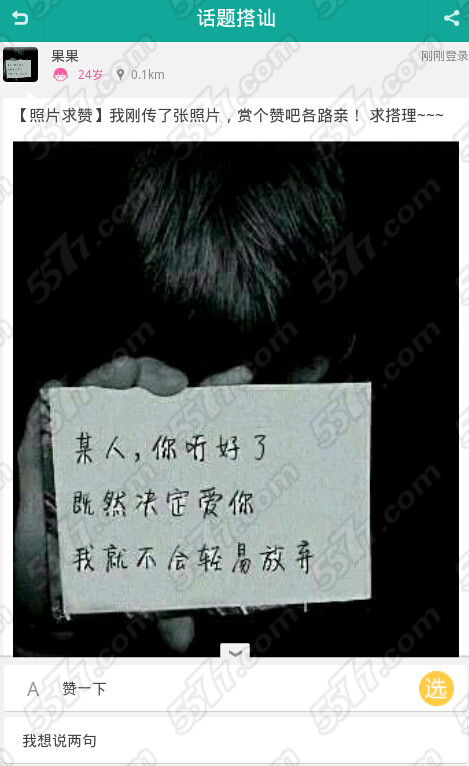 话题搭讪
果果
刚刚登录
24岁
0.1km
【照片求赞】我刚传了张照片，赏个赞吧各路亲！ 求搭理~~~
某人，你听好了
既然决定爱你
我就不会轻易放弃
A 赞一下
选
我想说两句
5577.com